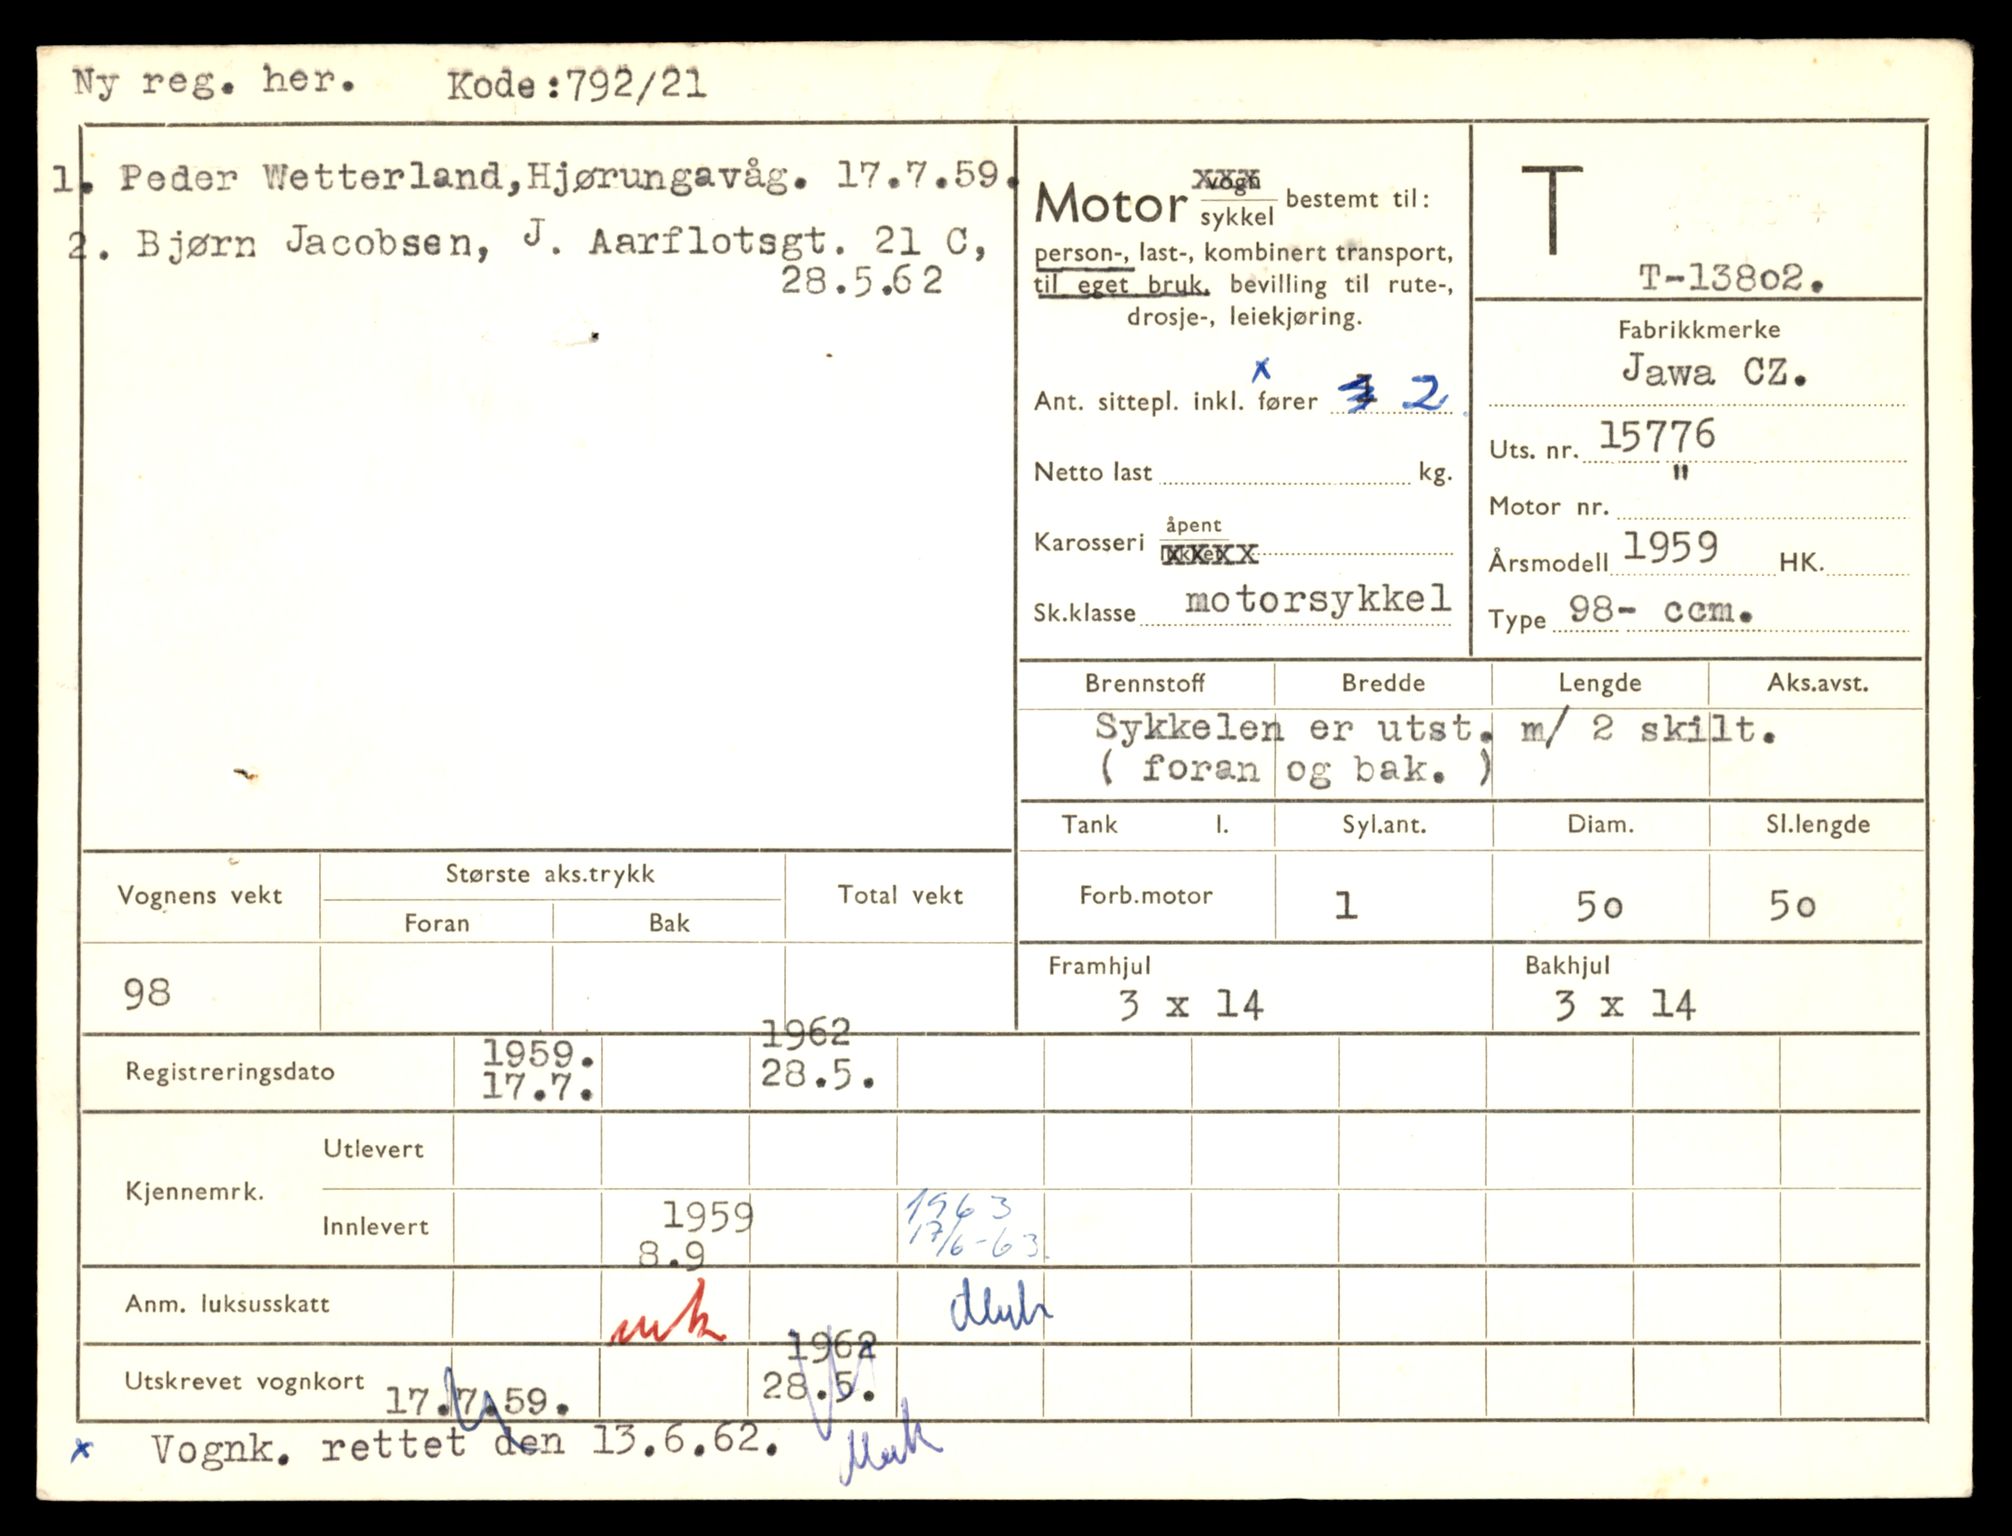 Ny reg. her. Kode:792/21
1. Peder Wetterland,Hjørungavåg. 17.7.59.
2. Bjørn Jacobsen, J. Aarflotsgt. 21 C,
28.5.62
Motor vogn/sykkel bestemt til:
person-, last-, kombinert transport,
til eget bruk, bevilling til rute-,
drosje-, leiekjøring.
x
Ant. sittepl. inkl. fører 2
Netto last kg.
Karosseri åpent
xxxx
Sk.klasse motorsykkel
T
T-138o2.
Fabrikkmerke
Jawa CZ.
Uts. nr. 15776
"
Motor nr.
Årsmodell 1959 HK.
Type 98- ccm.
Brennstoff Bredde Lengde Aks.avst.
Sykkelen er utst. m/ 2 skilt.
( foran og bak. )
Tank l. Syl.ant. Diam. Sl.lengde
Forb.motor 1 5o 5o
Framhjul Bakhjul
3 x 14 3 x 14
Vognens vekt Største aks.trykk Total vekt
Foran Bak
98
Registreringsdato 1959. 1962
17.7. 28.5.
Kjennemrk. Utlevert
Innlevert 1959 1963
8.9 17/6-63.
Anm. luksusskatt
1962
Utskrevet vognkort 17.7.59. 28.5.
x Vognk. rettet den 13.6.62.